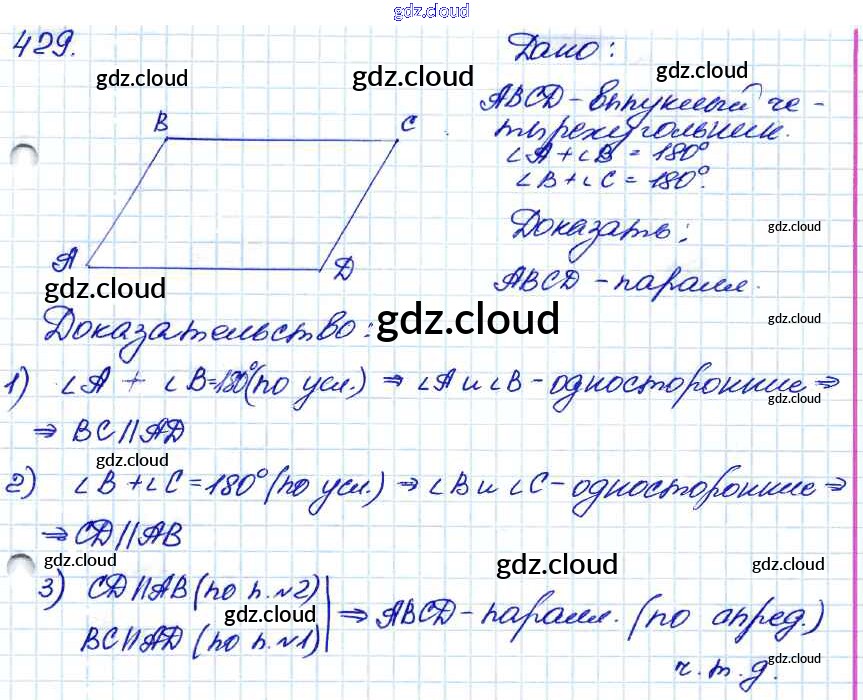 gdz.cloud
429.
Дано:
gdz.cloud
gdz.cloud
gdz.cloud
ABCD - выпуклый че-
тырехугольник.
∠A + ∠B = 180°
∠B + ∠C = 180°.
B
C
A
D
Доказать:
gdz.cloud
ABCD - паралл.
gdz.cloud
gdz.cloud
Доказательство:
gdz.cloud
1) ∠A + ∠B = 180° (по усл.) ⇒ ∠A и ∠B - односторонние ⇒
gdz.cloud
⇒ BC || AD
gdz.cloud
2) ∠B + ∠C = 180° (по усл.) ⇒ ∠B и ∠C - односторонние ⇒
⇒ CD || AB
gdz.cloud
gdz.cloud
gdz.cloud
3) CD || AB (по п. №2)
BC || AD (по п. №1)
⇒ ABCD - паралл. (по опред.)
gdz.cloud
ч.т.д.
gdz.cloud